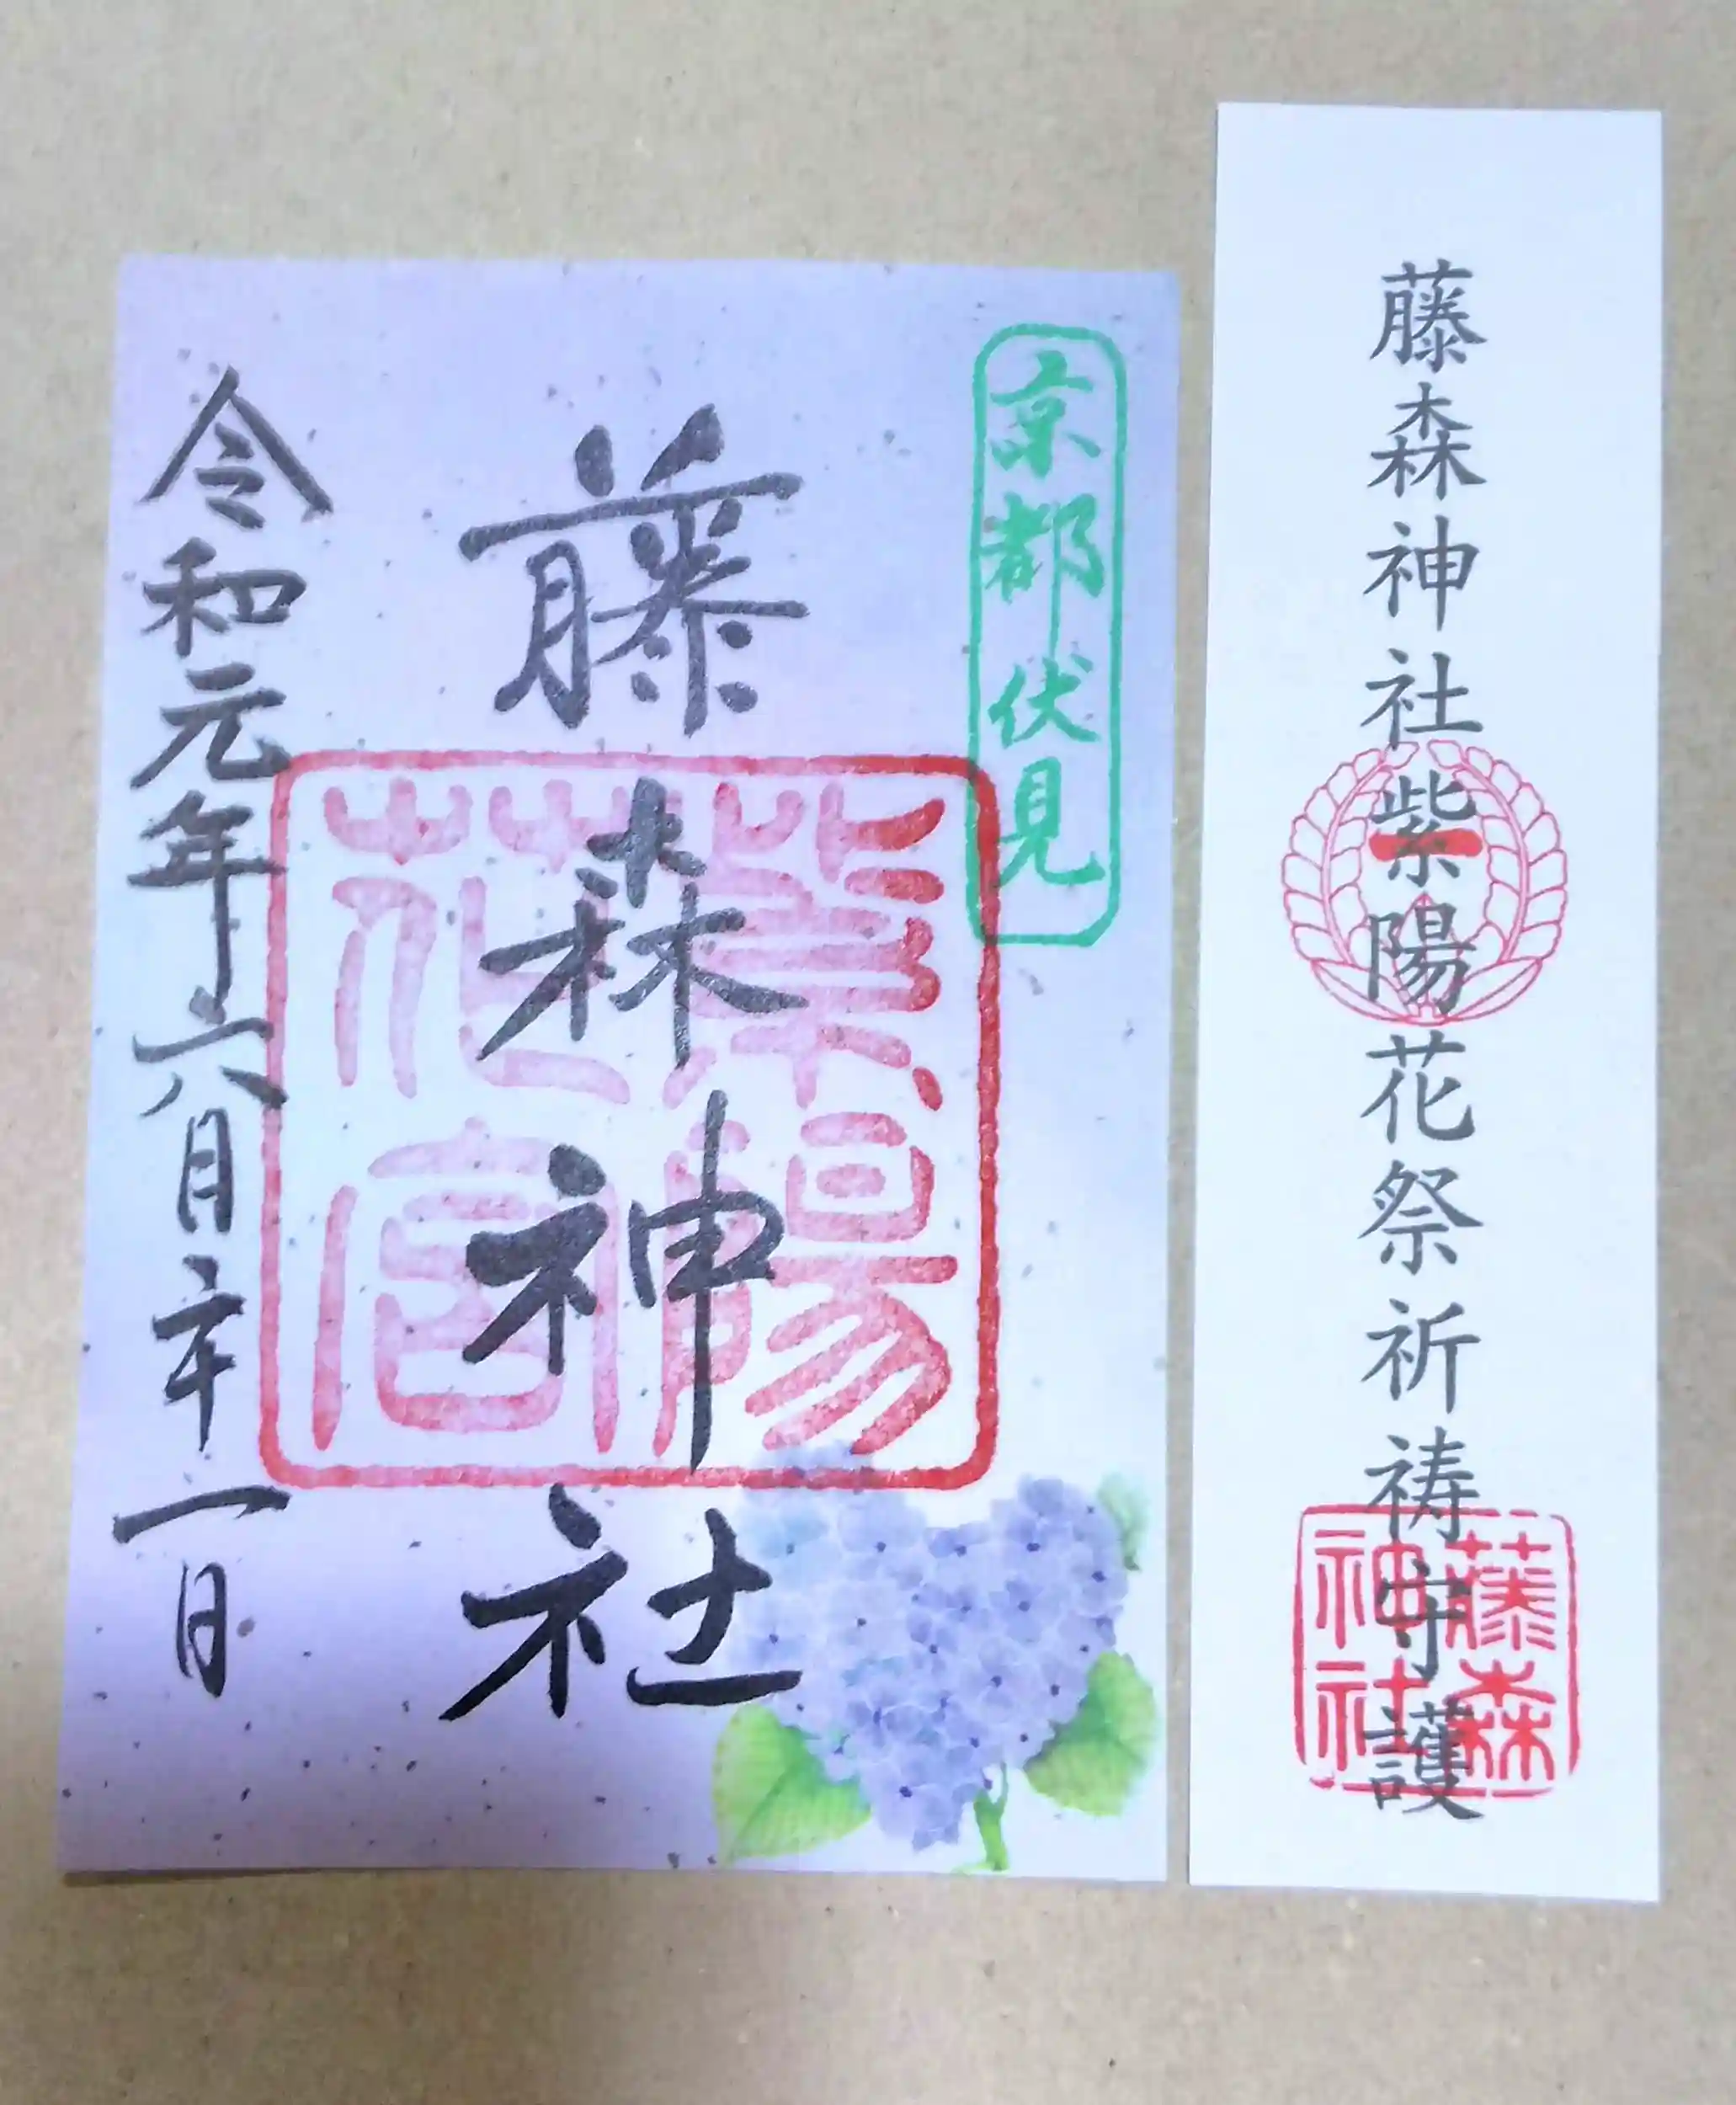 藤森神社紫陽花祭祈祷守護
藤森
神社
京都伏見
藤森神社
紫陽
花宮
令和元年六月二十一日